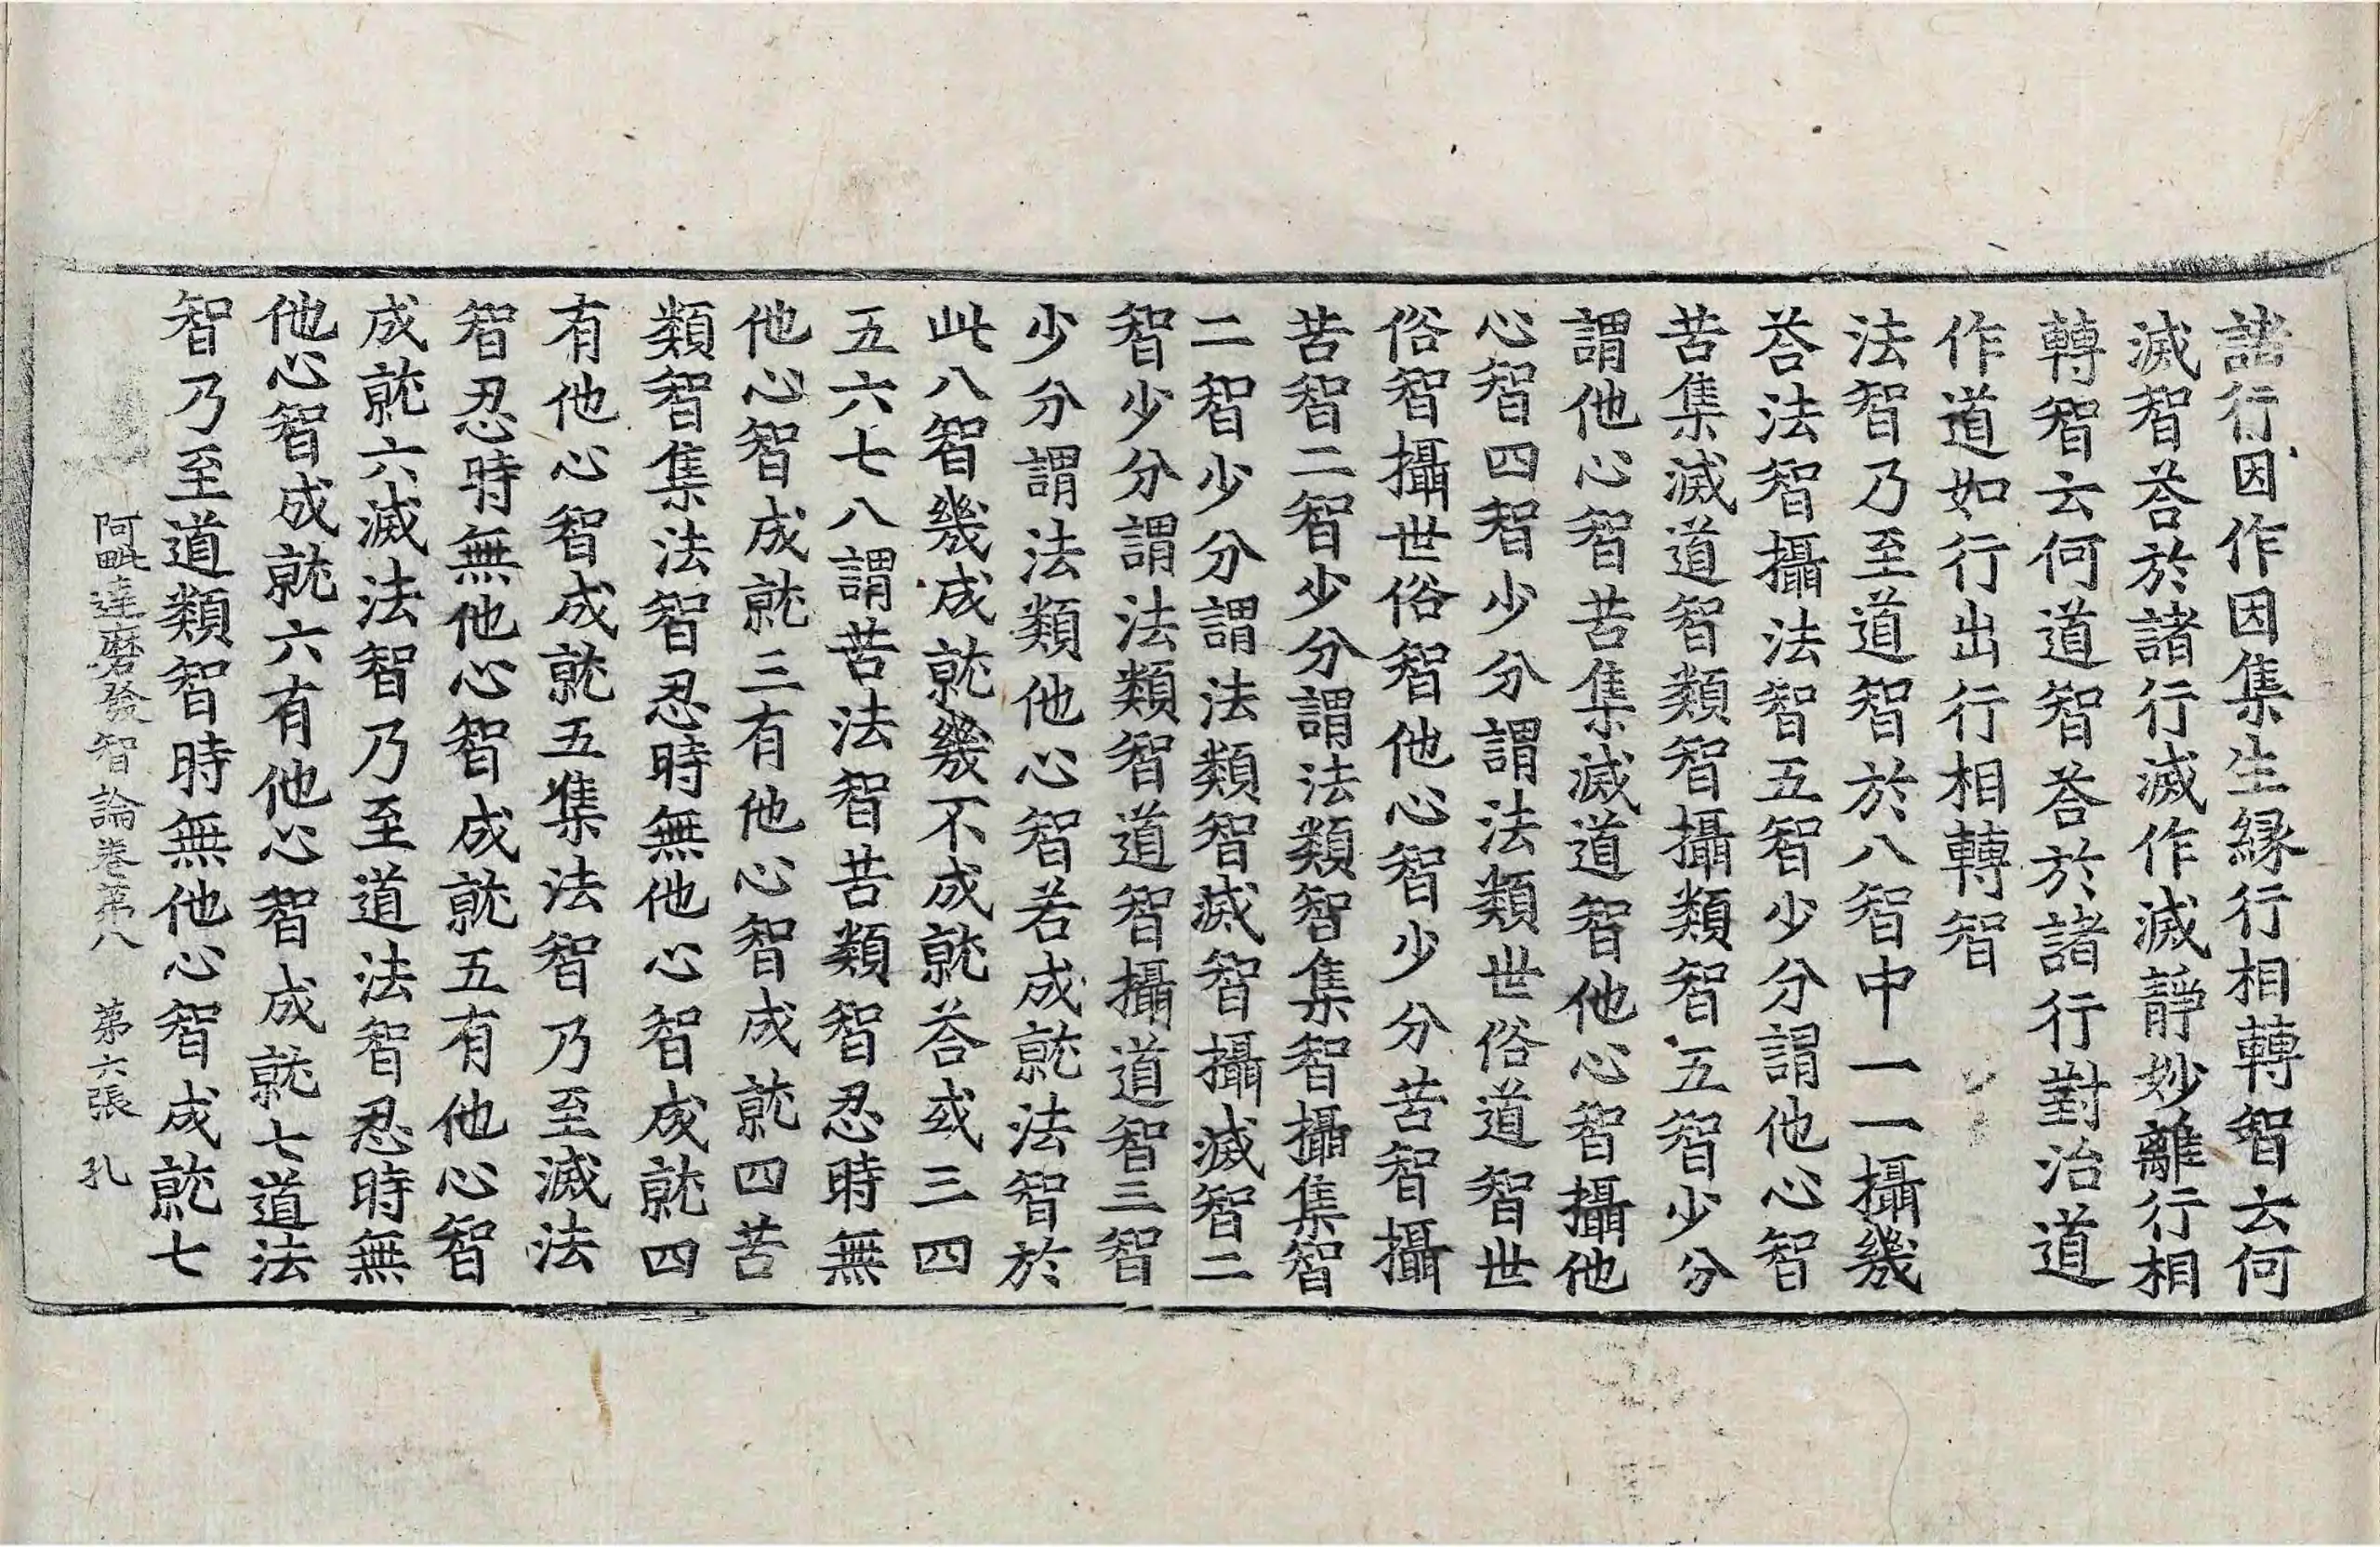 諸行因作因集生縁行相轉智云何
滅智荅於諸行滅作滅靜妙離行相
轉智云何道智荅於諸行對治道
作道如行出行相轉智
法智乃至道智於八智中一一攝幾
荅法智攝法智五智少分謂他心智
苦集滅道智類智攝類智五智少分
謂他心智苦集滅道智他心智攝他
心智四智少分謂法類世俗道智世
俗智攝世俗智他心智少分苦智攝
苦智二智少分謂法類智集智攝集智
二智少分謂法類智滅智攝滅智二
智少分謂法類智道智攝道智三智
少分謂法類他心智若成就法智於
此八智幾成就幾不成就荅或三四
五六七八謂苦法智苦類智忍時無
他心智成就三有他心智成就四苦
類智集法智忍時無他心智成就四
有他心智成就五集法智乃至滅法
智忍時無他心智成就五有他心智
成就六滅法智乃至道法智忍時無
他心智成就六有他心智成就七道法
智乃至道類智時無他心智成就七
阿毗達磨發智論卷第八 第六張 孔